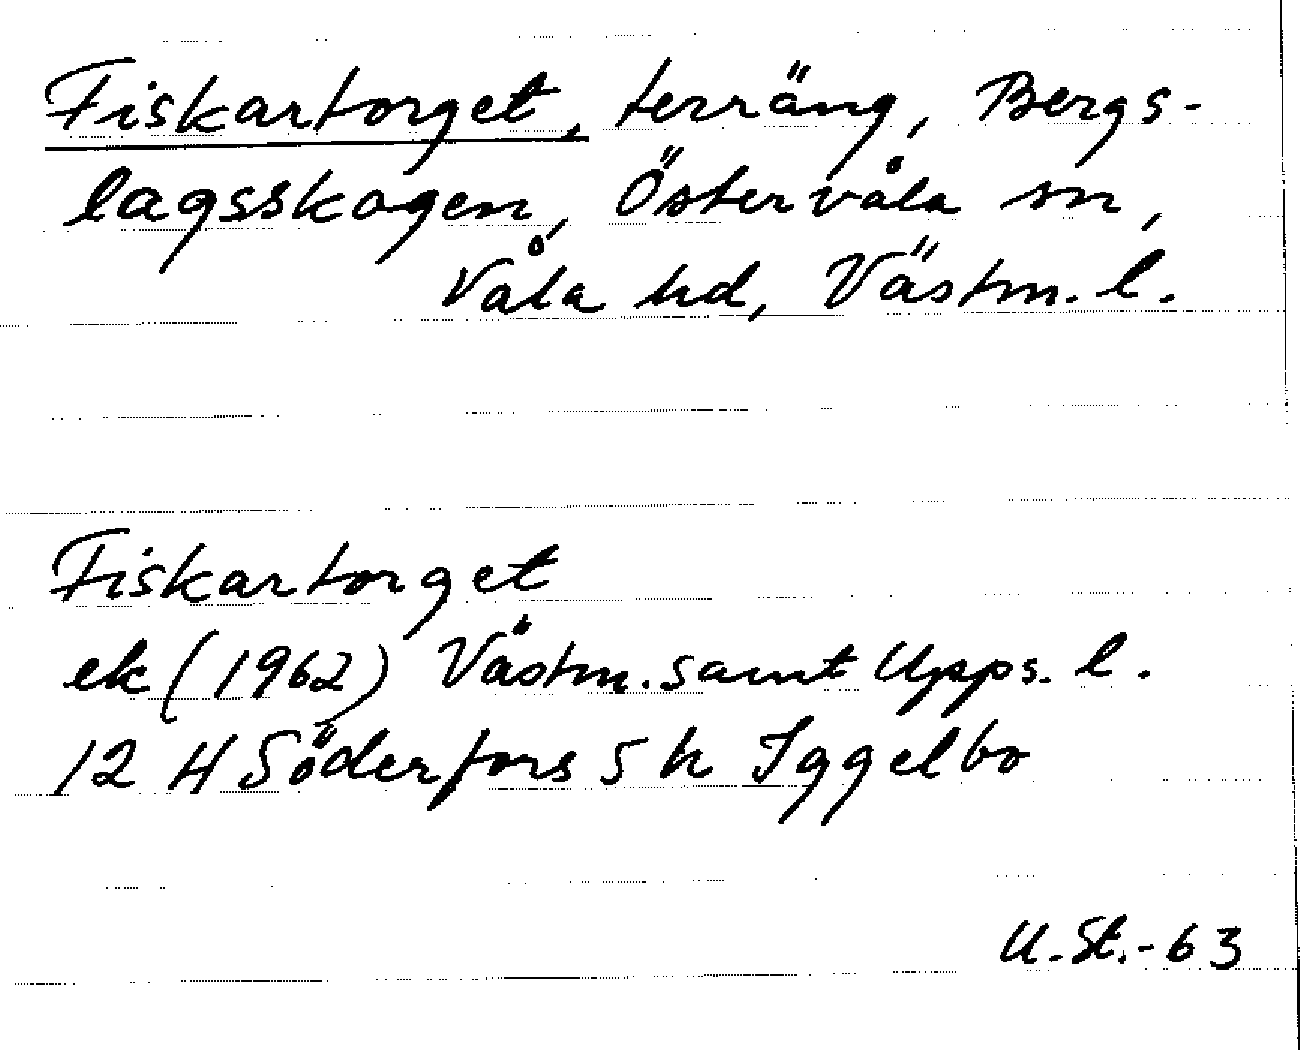 Fiskartorget, terräng, Bergs-
lagsskogen, Östervåla sn,
Våla hd, Västm. l.
Fiskartorget
ek (1962) Västm. samt Upps. l.
12 H Söderfors 5 h Iggelbo
U. St. - 63